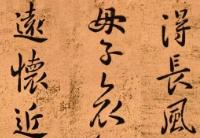 得長風
母子衣
遠懷近